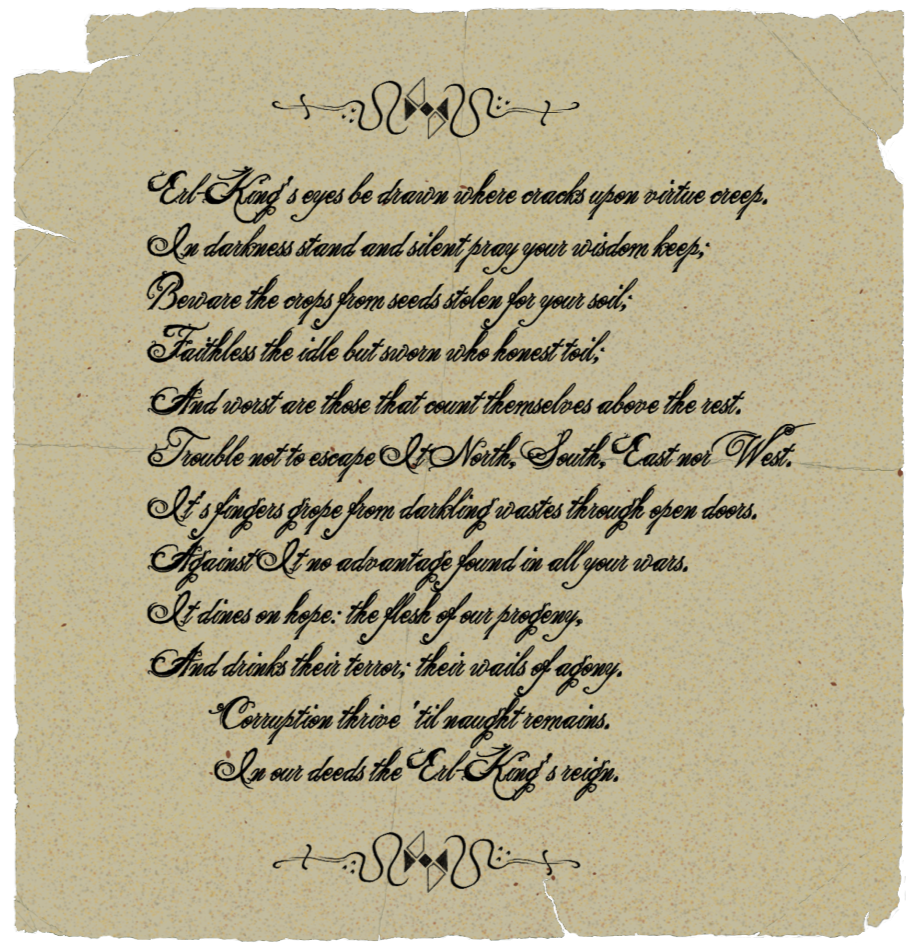 Erl-King's eyes be drawn where cracks upon virtue creep.
In darkness stand and silent pray your wisdom keep;
Beware the crops from seeds stolen for your soil;
Faithless the idle but sworn who honest toil;
And worst are those that count themselves above the rest.
Trouble not to escape It North, South, East nor West.
It's fingers grope from darkling wastes through open doors.
Against It no advantage found in all your wars.
It dines on hope: the flesh of our progeny,
And drinks their terror; their wails of agony.
Corruption thrive 'til naught remains.
In our deeds the Erl-King's reign.